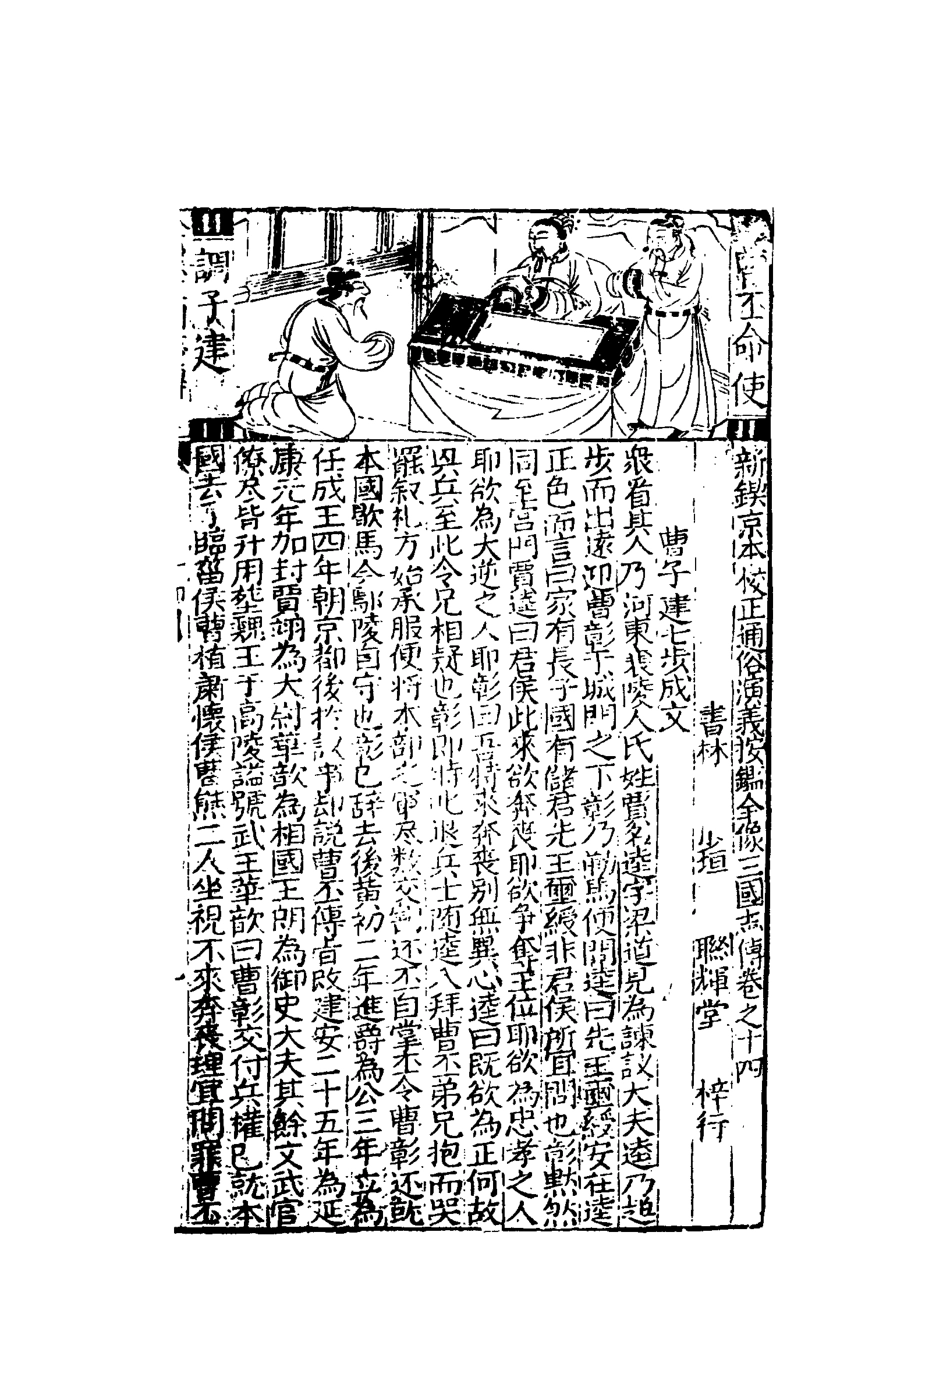 曹丕命使
調子建
新鋟京本校正通俗演義按鑑全像三國志傳卷之十四
書林 少垣 聮輝堂 梓行
曹子建七步成文
衆省其人乃河東襄陵人氏姓賈名逵字梁道見為諫議大夫逵乃趋
步而出遠迎曹彰于城門之下彰乃馬便問逵曰先王璽綬安在逵
正色而言曰家有長子國有儲君先王璽綬非君侯所宜問也彰黙然
同至宫門賈逵曰君侯此來欲奔喪耶欲争奪王位耶欲為忠孝之人
耶欲為大逆之人耶彰曰吾特來奔丧别無異心逵曰既欲為正何故
兵至此令兄相疑也彰即時退兵士随逵入拜曹丕弟兄抱而哭
罷叙礼方始承服便将本部之軍尽数交割还丕自掌丕令曹彰还旣
本國歇馬今鄢陵自守也彰已辞去後黄初二年進爵為公三年立為
任成王四年朝京都後於事却説曹丕傳旨改建安二十五年為延
康元年加封賈翊為大尉華歆為相國王朗為御史大夫其餘文武官
僚尽皆升用塟魏王于高陵謚號武王華歆曰曹彰交付兵權已就本
國去了臨菑侯曹植肅懷侯曹熊二人坐視不來奔喪理宜問罪曹丕